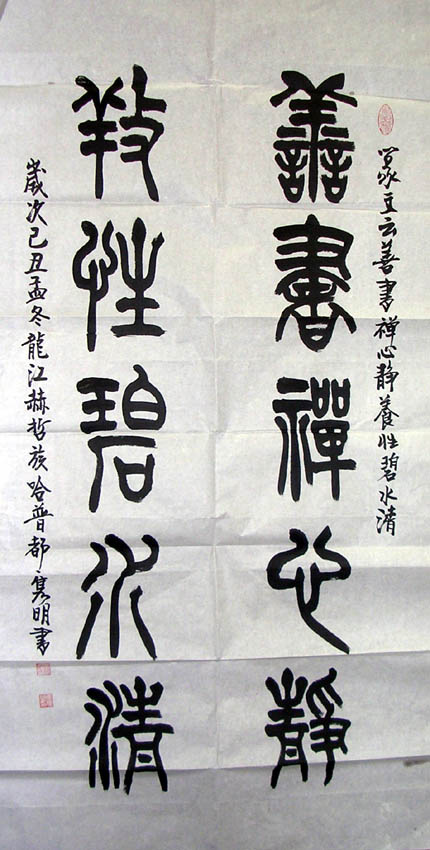 主云善書禪心靜養性碧水清
善書禪心靜
養性碧水清
歲次己丑孟冬龍江赫哲族哈普都隽明書